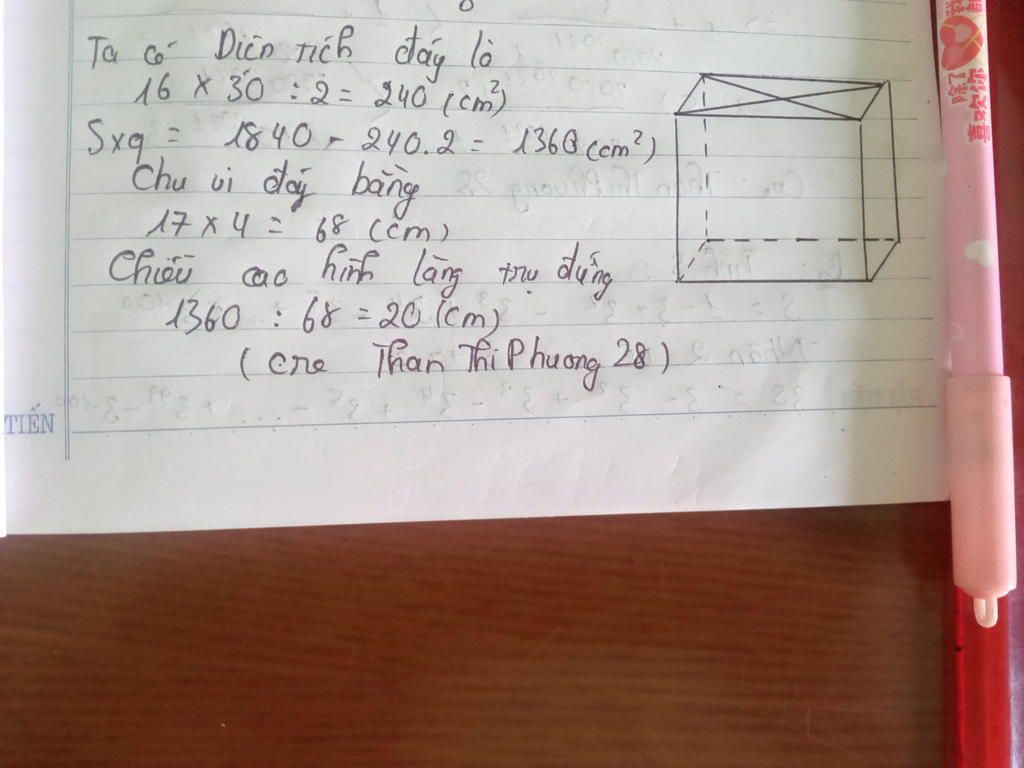 Ta có Diện tích đáy là
16 × 30 : 2 = 240 (cm²)
Sxq = 1840 - 240.2 = 1360 (cm²)
Chu vi đáy bằng
17 × 4 = 68 (cm)
Chiều cao hình lăng trụ đứng
1360 : 68 = 20 (cm)
( Cre Than Thi Phuong 28 )
TIẾN
除了
喜欢你